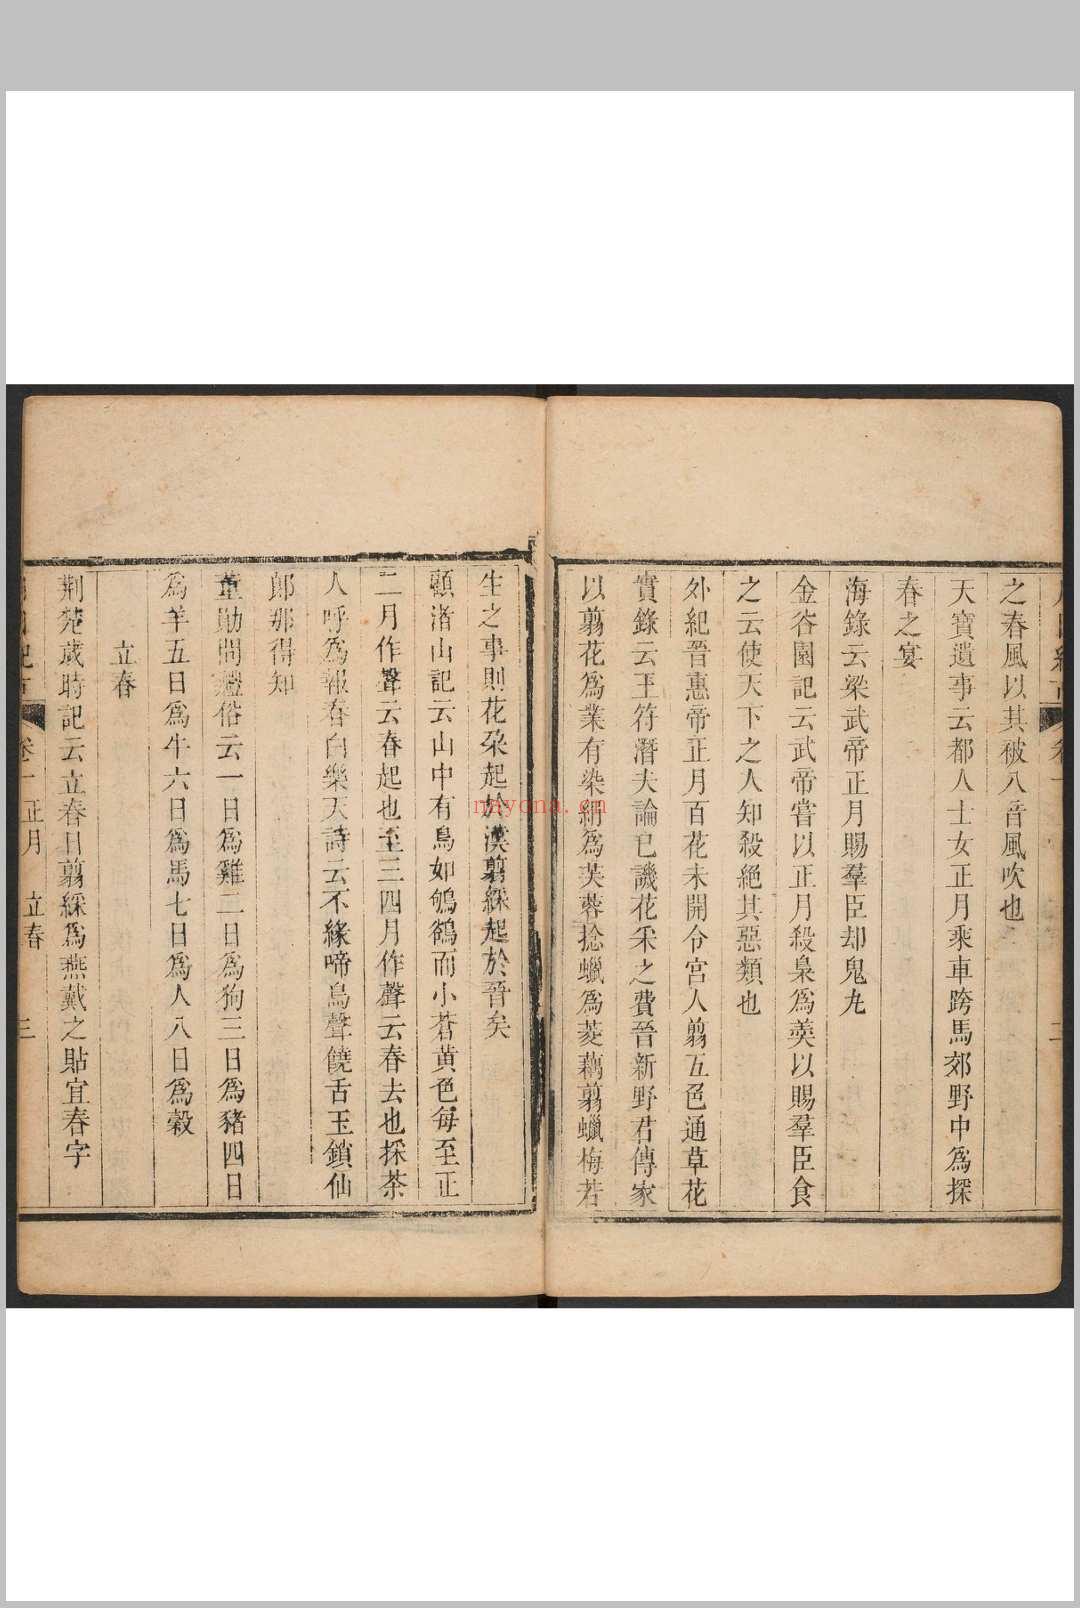 之春風以其被八音風吹也
天寶遺事云都人士女正月乘車跨馬郊野中爲探
春之宴
海錄云梁武帝正月賜羣臣却鬼丸
金谷園記云武帝嘗以正月殺梟爲羮以賜羣臣食
之云使天下之人知殺絕其惡類也
外紀晉惠帝正月百花未開令宮人翦五色通草花
實錄云王符潛夫論已譏花采之費晉新野君傳家
以翦花爲業有染絹爲芙蓉捻蠟爲菱藕翦蠟梅若
生之事則花朶起於漢翦綵起於晉矣
顧渚山記云山中有鳥如鴝鵒而小蒼黃色每至正
二月作聲云春起也至三四月作聲云春去也採茶
人呼爲報春白樂天詩云不緣啼鳥聲饒舌玉鎖仙
郞那得知
董勛問禮俗云一日爲雞二日爲狗三日爲豬四日
爲羊五日爲牛六日爲馬七日爲人八日爲穀
立春
荆楚歲時記云立春日翦綵爲燕戴之貼宜春字
卷一 正月 立春 三
nayona.cn